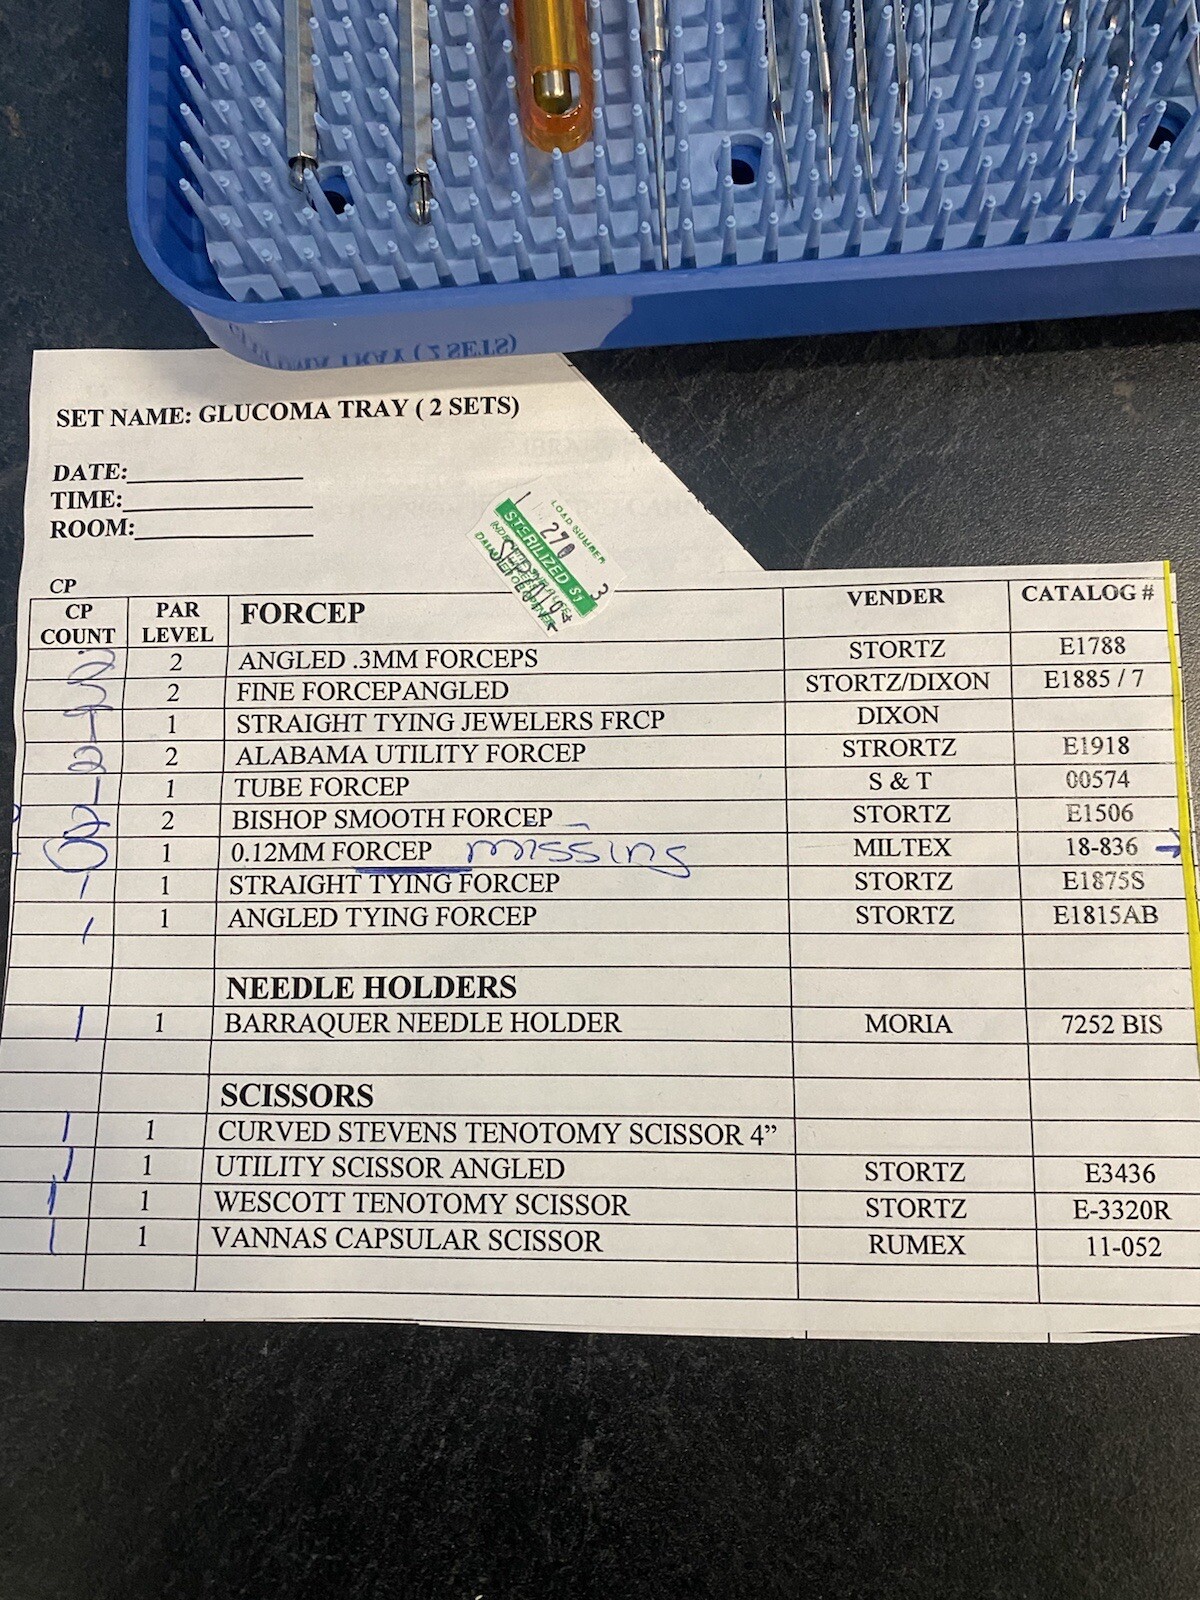 GLUCOMA TRAY ( 2 SETS)
SET NAME: GLUCOMA TRAY ( 2 SETS)
DATE:
TIME:
ROOM:
LOAD NUMBER
270
STERILIZED
3
CP
CP COUNT PAR LEVEL FORCEP VENDER CATALOG #
2 2 ANGLED .3MM FORCEPS STORTZ E1788
2 2 FINE FORCEPANGLED STORTZ/DIXON E1885 / 7
1 1 STRAIGHT TYING JEWELERS FRCP DIXON
2 2 ALABAMA UTILITY FORCEP STRORTZ E1918
1 1 TUBE FORCEP S & T 00574
2 2 BISHOP SMOOTH FORCEP STORTZ E1506
0 1 0.12MM FORCEP missing MILTEX 18-836 →
1 1 STRAIGHT TYING FORCEP STORTZ E1875S
1 1 ANGLED TYING FORCEP STORTZ E1815AB
NEEDLE HOLDERS
1 1 BARRAQUER NEEDLE HOLDER MORIA 7252 BIS
SCISSORS
1 1 CURVED STEVENS TENOTOMY SCISSOR 4”
1 1 UTILITY SCISSOR ANGLED STORTZ E3436
1 1 WESCOTT TENOTOMY SCISSOR STORTZ E-3320R
1 1 VANNAS CAPSULAR SCISSOR RUMEX 11-052